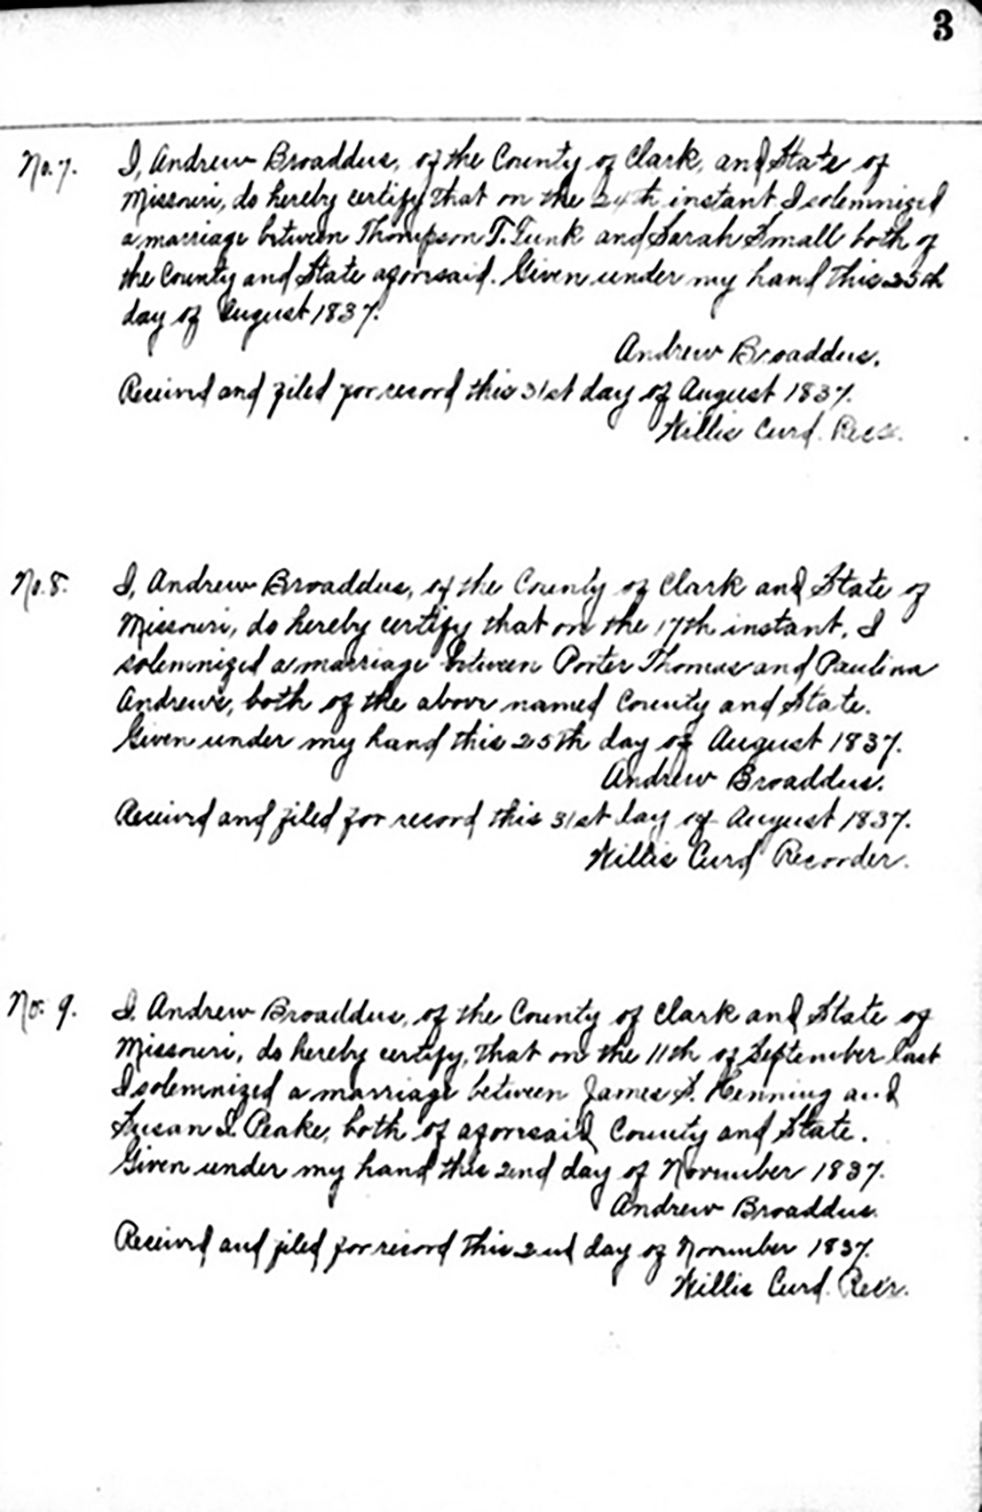 3
No. 7. I, Andrew Broaddus, of the County of Clark, and State of
Missouri, do hereby certify that on the 24th instant I solemnized
a marriage between Thompson T. Gunk and Sarah Small both of
the County and State aforesaid. Given under my hand this 25th
day of August 1837.
Andrew Broaddus.
Received and filed for record this 31st day of August 1837.
Willis Curd. Recr.
No. 8. I, Andrew Broaddus, of the County of Clark and State of
Missouri, do hereby certify that on the 17th instant, I
solemnized a marriage between Porter Thomas and Paulina
Andrews, both of the above named County and State.
Given under my hand this 25th day of August 1837.
Andrew Broaddus.
Received and filed for record this 31st day of August 1837.
Willis Curd Recorder.
No. 9. I, Andrew Broaddus, of the County of Clark and State of
Missouri, do hereby certify, that on the 11th of September last
I solemnized a marriage between James S. Henning and
Susan I. Peake, both of aforesaid County and State.
Given under my hand this 2nd day of November 1837.
Andrew Broaddus.
Received and filed for record this 2nd day of November 1837.
Willis Curd. Recr.